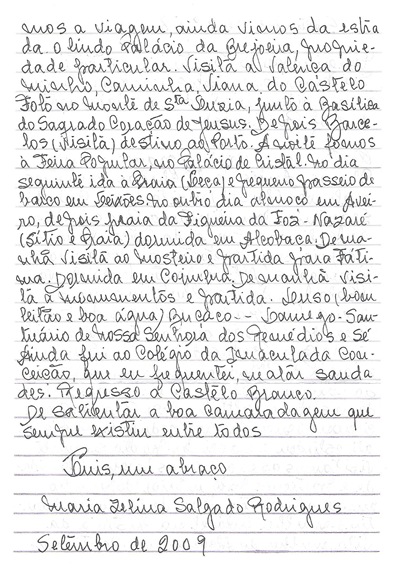 mos a viagem, ainda vimos da estra
da. o lindo Palácio da Brejoeira, proprie-
dade particular. Visita a Valença do
Minho, Caminha, Viana do Castelo
Foto no Monte de Stª Luzia, junto à Basílica
do Sagrado Coração de Jesus. Depois Barce-
los (Visita) destino ao Porto. À noite fomos
à Feira Popular, no Palácio de Cristal. No dia
seguinte ida à Praia (Leça) e pequeno passeio de
barco em Leixões. No outro dia almoço em Avei-
ro, depois praia da Figueira da Foz - Nazaré
(Sítio e Praia) dormida em Alcobaça. De ma-
nhã Visita ao Mosteiro e partida para Fáti-
ma. Dormida em Coimbra. De manhã Visi-
ta a monumentos e partida. Luso (bom
leitão e boa água) Buçaco -- Lamego - San-
tuário de Nossa Senhora dos Remédios e Sé
Ainda fui ao Colégio da Imaculada Con-
ceição, que eu frequentei, matar sauda
des. Regresso a Castelo Branco.
De salientar a boa camaradagem que
sempre existiu entre todos
um abraço
Maria Salgado Rodrigues
Setembro de 2009